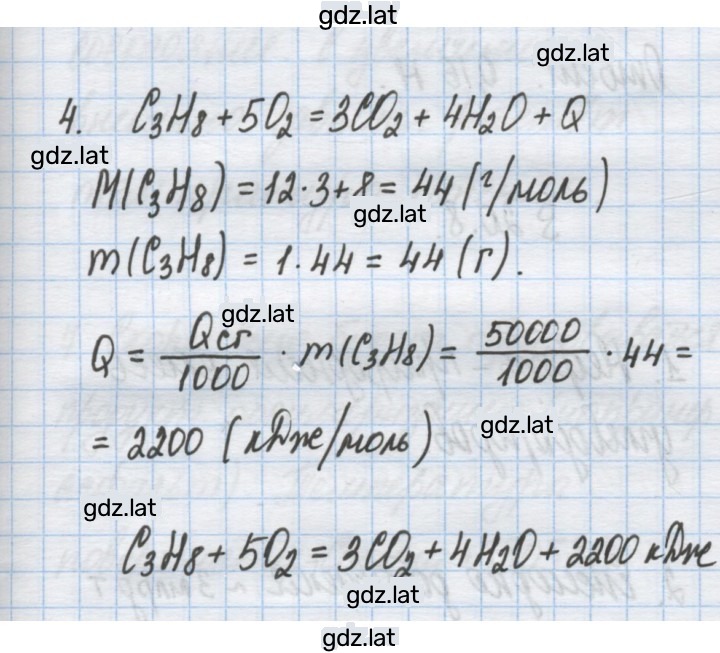 gdz.lat
gdz.lat
4. C₃H₈ + 5O₂ = 3CO₂ + 4H₂O + Q
gdz.lat
M(C₃H₈) = 12·3+8 = 44 (г/моль)
gdz.lat
m(C₃H₈) = 1·44 = 44 (г).
gdz.lat
Q = Qсг/1000 · m(C₃H₈) = 50000/1000 · 44 =
= 2200 (кДж/моль)
gdz.lat
gdz.lat
C₃H₈ + 5O₂ = 3CO₂ + 4H₂O + 2200 кДж
gdz.lat
gdz.lat